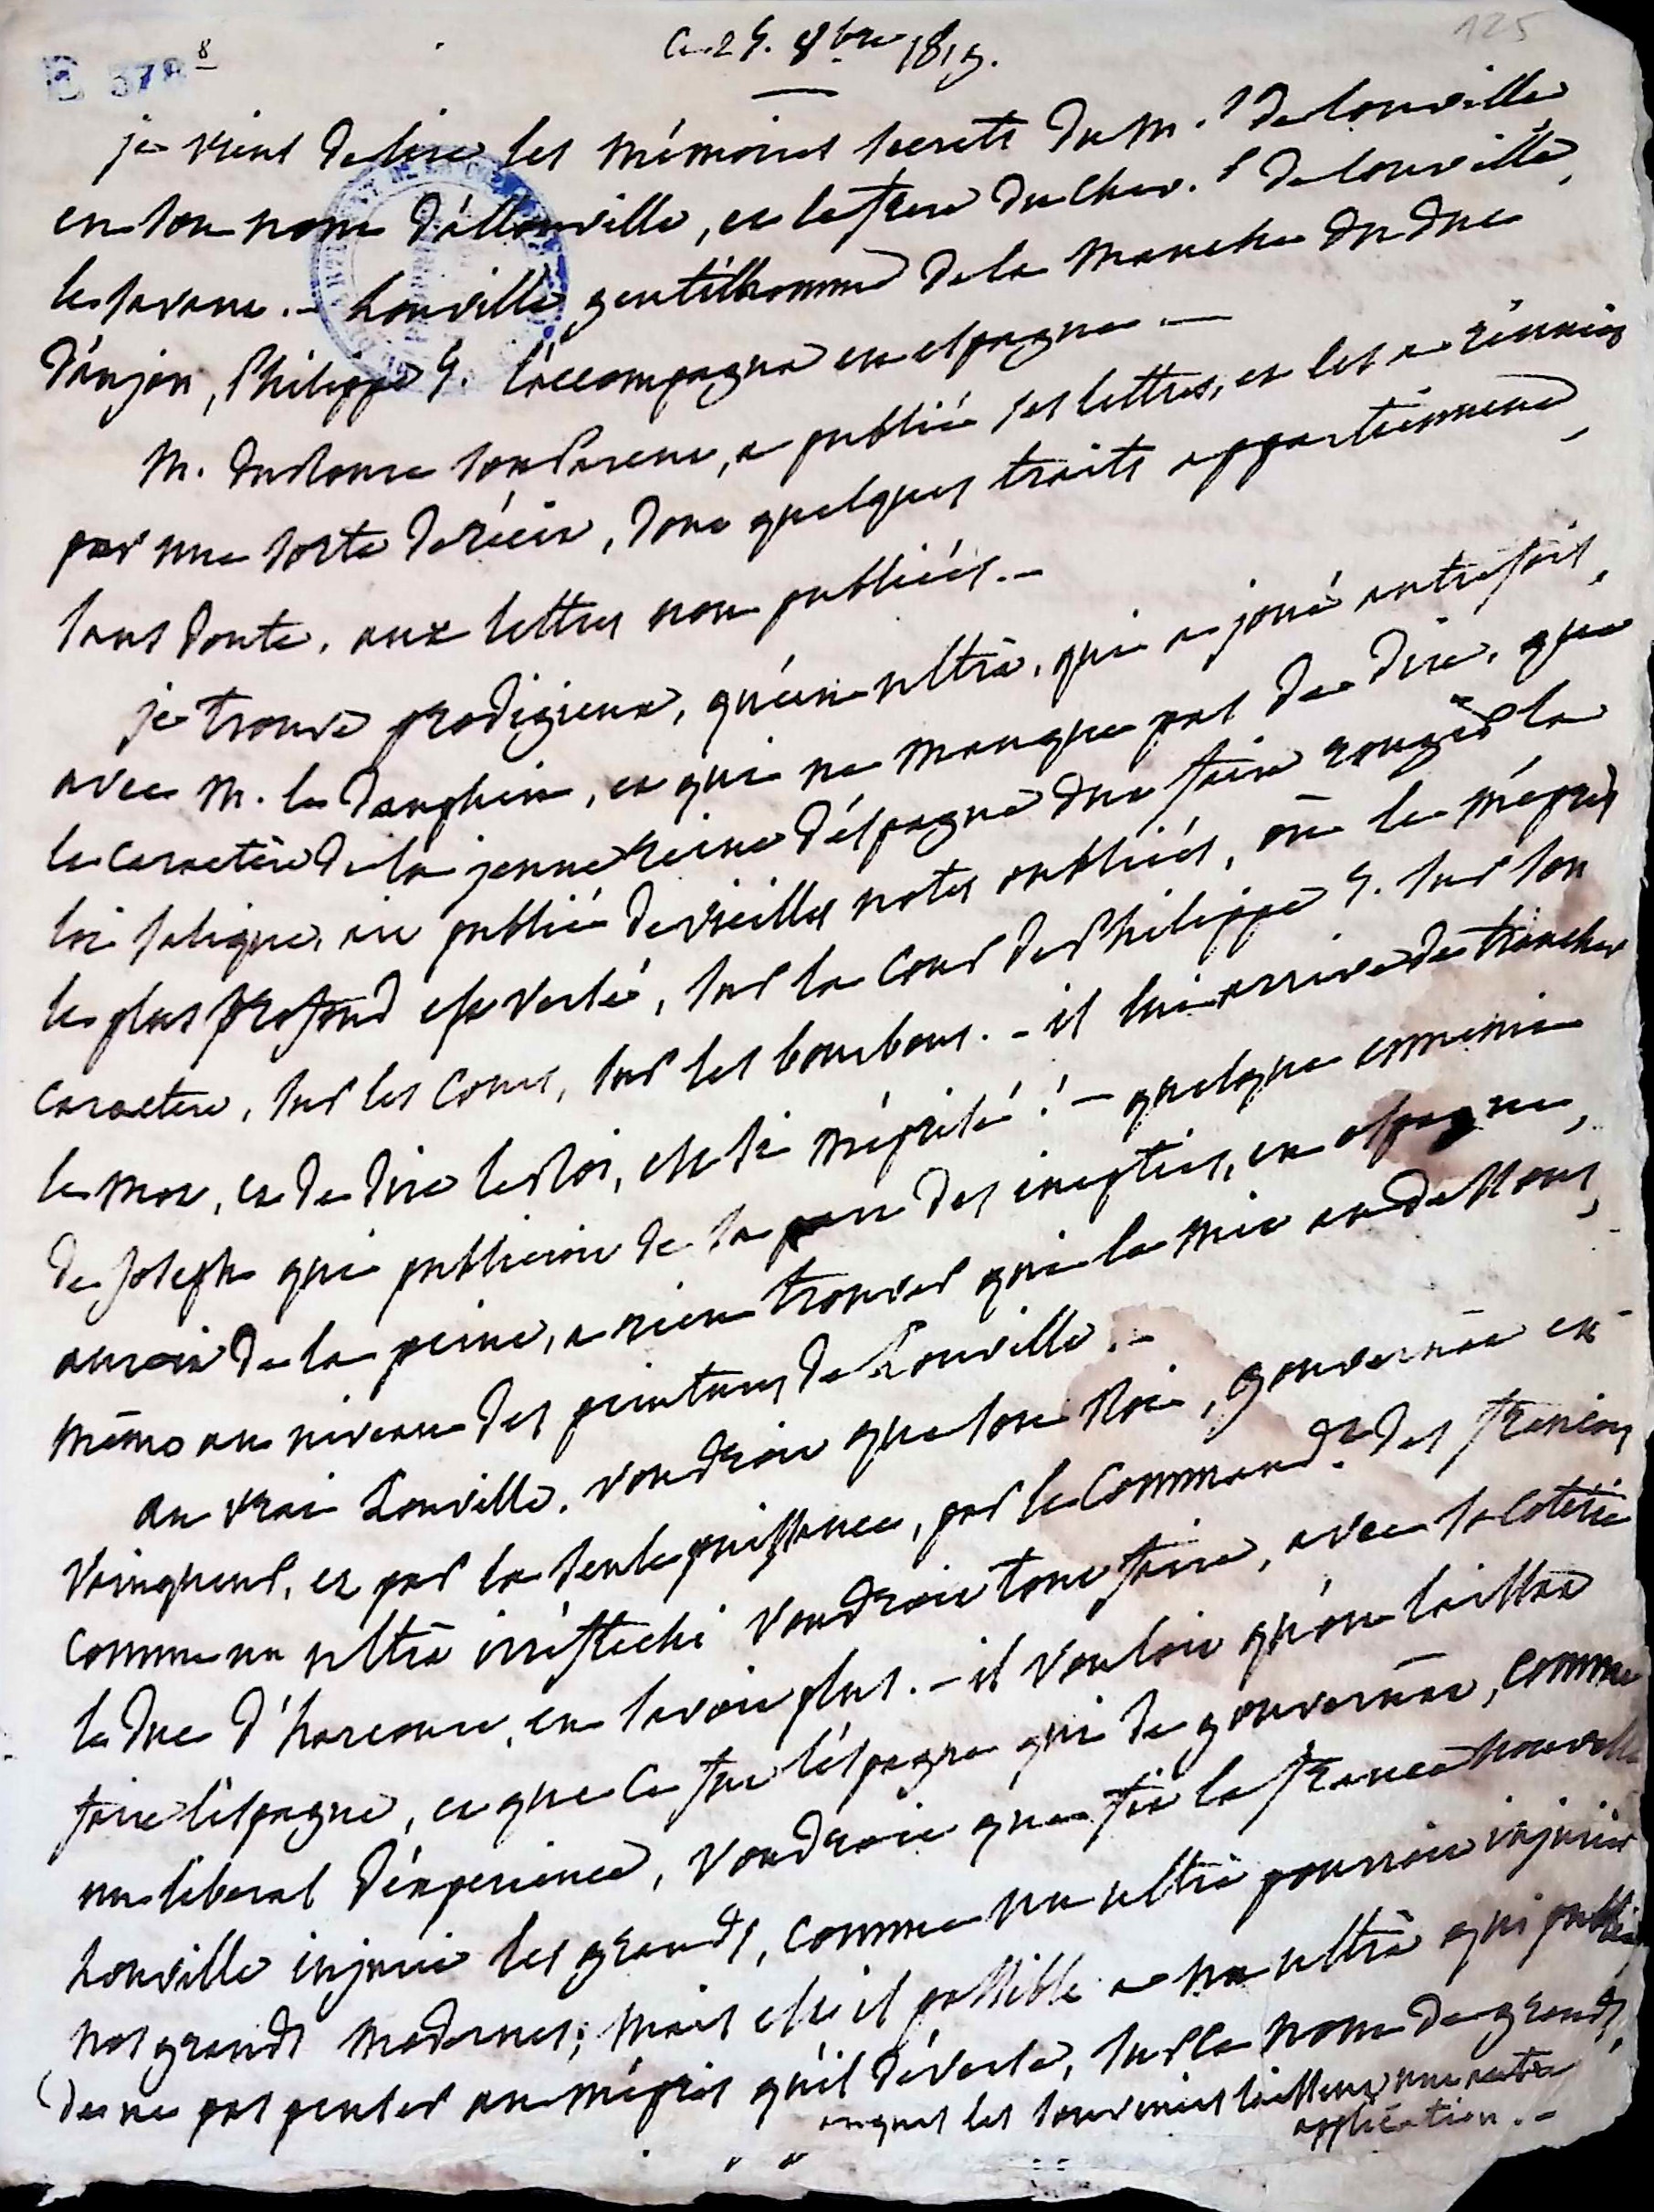 125
E 378 8
Ce 25. 8bre 1819.
je viens de lire les mémoires secrets du M.s de louville
en son nom d'allonville, et le frere du chev.r de louville,
le savant. - Louville gentilhomme de la manche du duc
d'anjou, Philippe 5. l'accompagna en espagne. -
M. du Roure son parent, a publié ses lettres, et les a réunies
par une sorte de récit, dont quelques traits appartiennent,
sans doute, aux lettres non publiées. -
je trouve prodigieux, qu'un ultra, qui a joué autrefois,
avec M. le Dauphin, et qui ne manque pas de dire, que
le caractère de la jeune reine d'espagne dut faire rougir la
loi salique, ait publié de vieilles notes oubliées, où le mépris
le plus profond est versé, sur la cour de Philippe 5. sur son
caractere, sur les cours, sur les bourbons. - il lui arrive de trancher
le mot, et de dire le Roi, est si méprisé ! - quelque ennemi
de Joseph qui publieroit de sa part des inepties, en espagne,
auroit de la peine, a rien trouver qui le mit au dessous,
même au niveau des peintures de Louville. -
au vrai Louville, voudroit que son Roi, gouvernât en
vainqueur, et par la seule puissance, par le command.t des françois
comme un ultra irréfléchi voudroit tout faire, avec sa coterie
le duc d'harcourt, en savoit plus. - il vouloit qu'on laissât
faire l'espagne, et que ce fut l'espagne qui se gouvernât, comme
un liberal d'expérience, voudroit que fit la france nouvelle
Louville injurie les grands, comme un ultra pourroit injurier
nos grands modernes; mais est-il possible a un ultra qui publie
de ne pas penser au mépris qu'il déverse, sur le nom de grands,
auquel les souvenirs laissent une autre
application. -